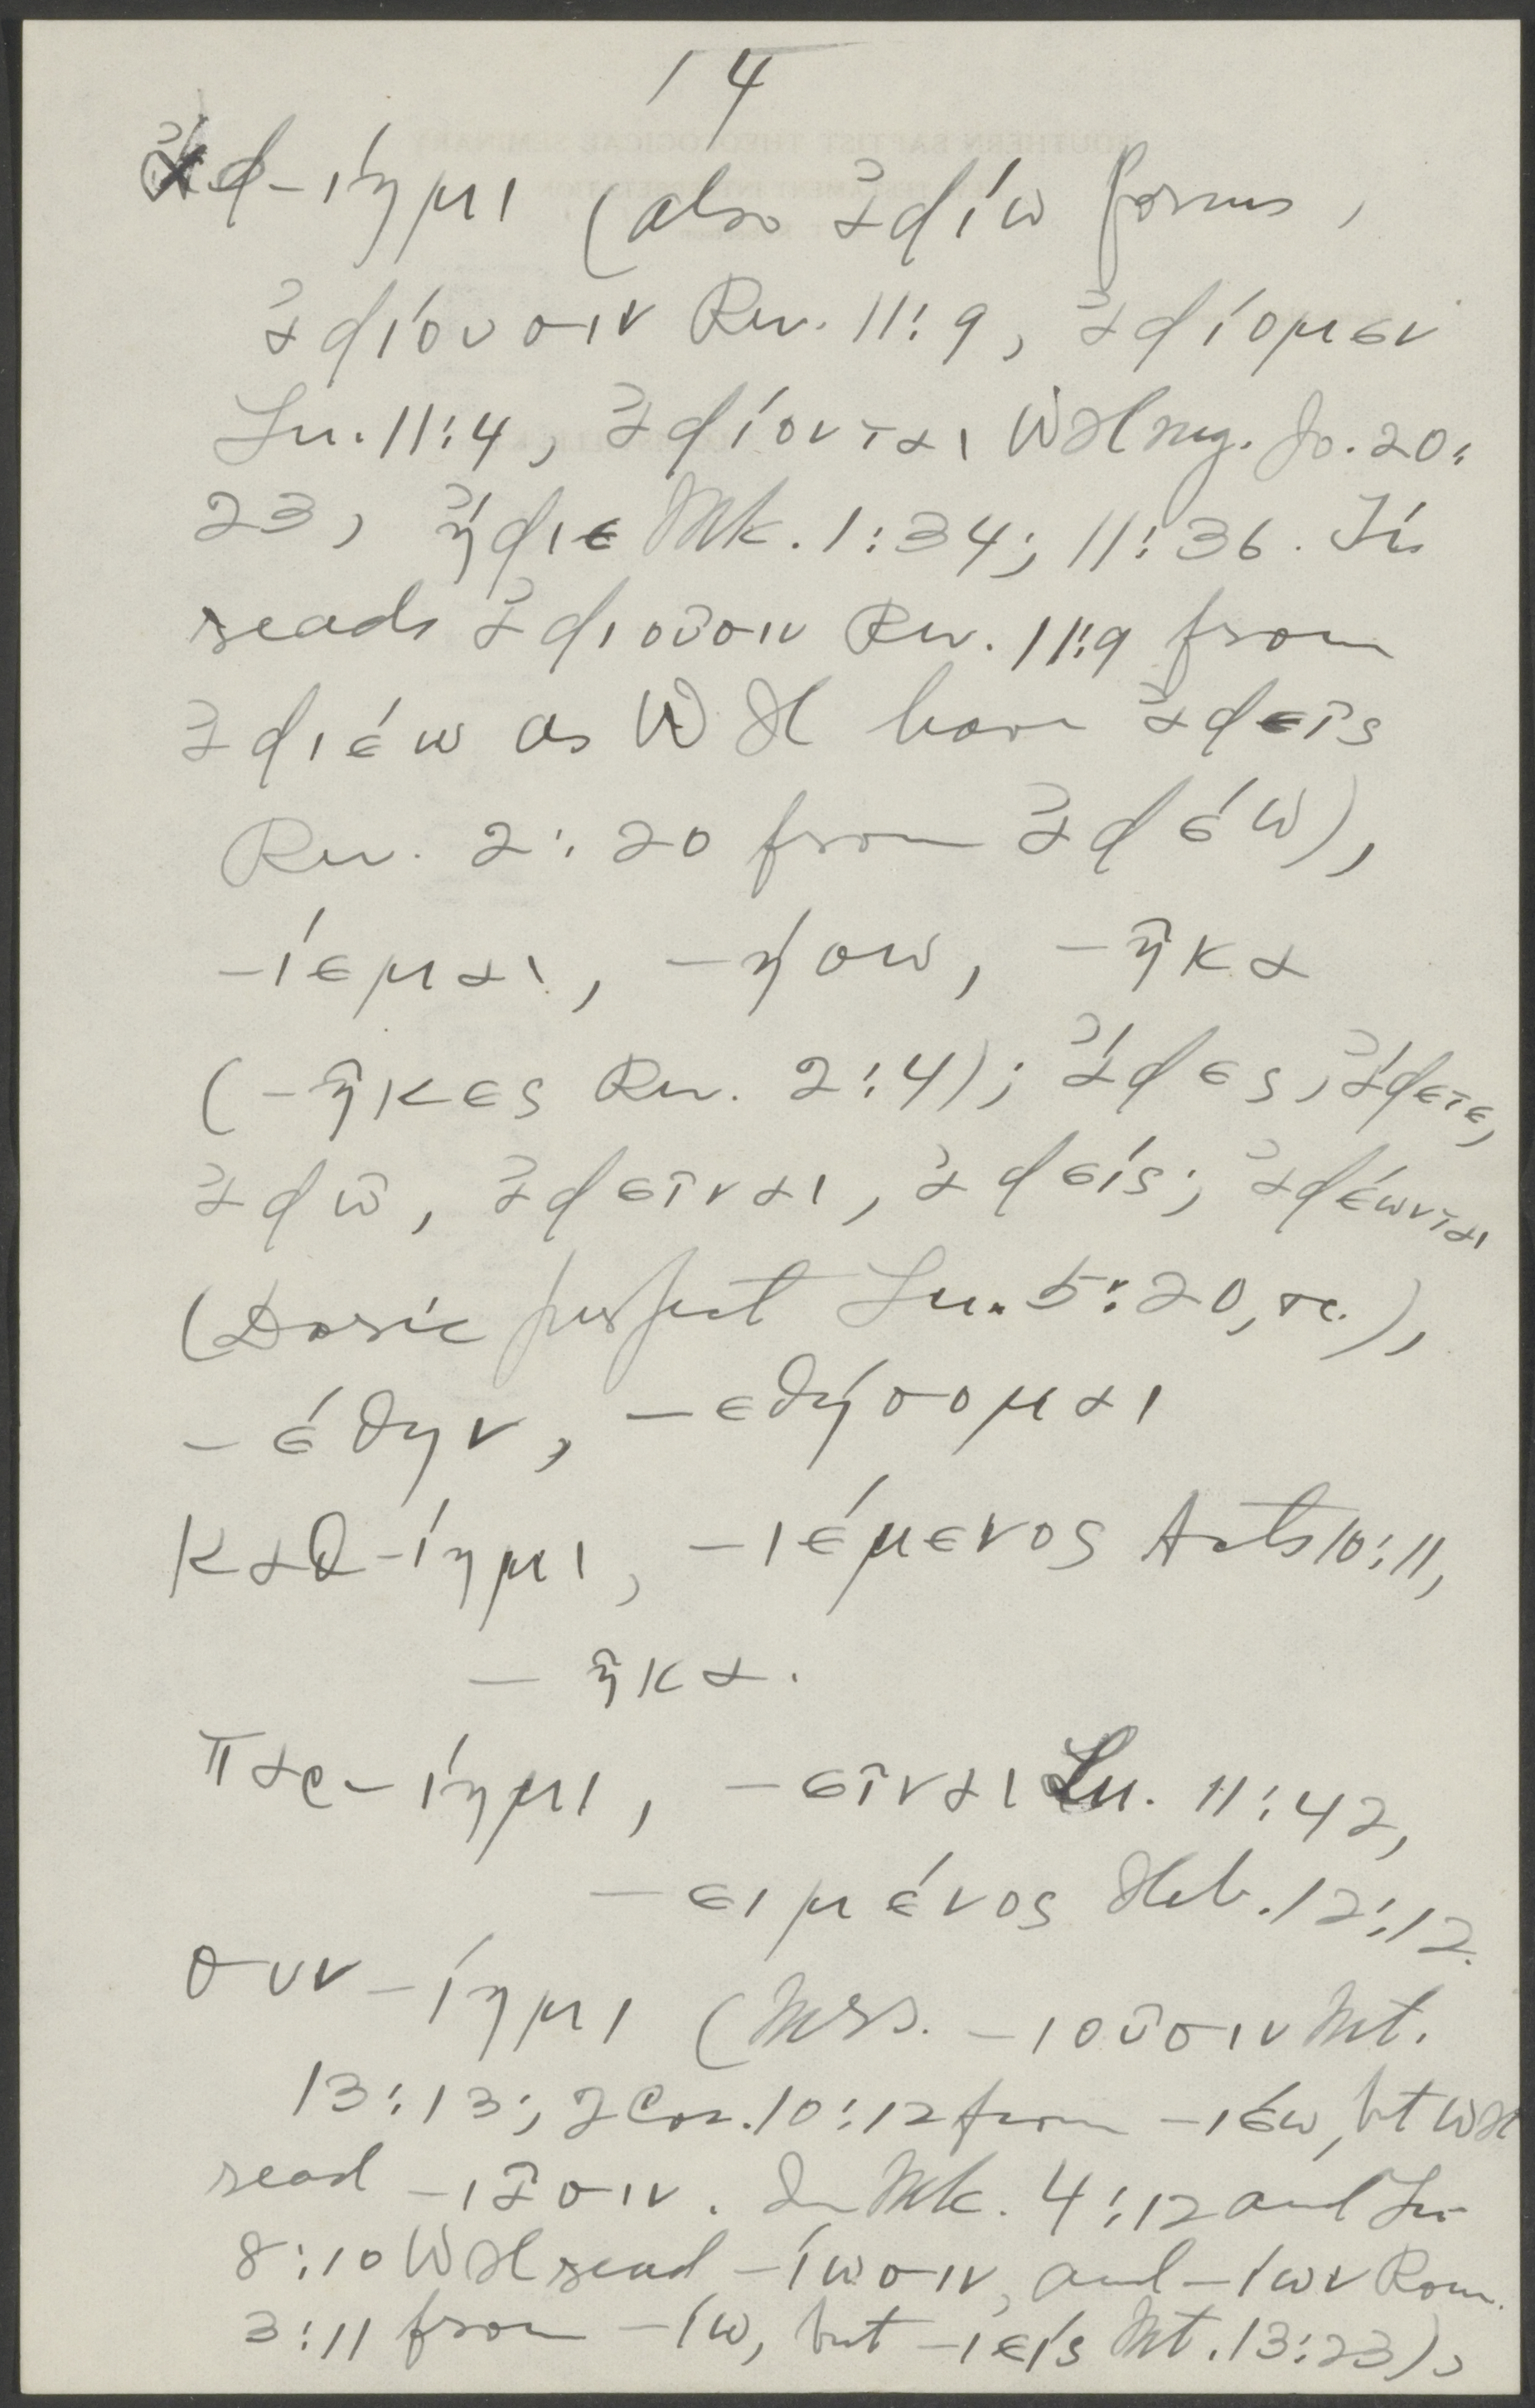 14
ἀφ-ίημι (also ἀφίω forms,
ἀφίουσιν Rev. 11:9, ἀφίομεν
Lu. 11:4, ἀφίονται WH mg. Jo. 20:
23, ἤφιε Mk. 1:34; 11:36. Ti.
reads ἀφιοῦσιν Rev. 11:9 from
ἀφιέω as WH have ἀφεῖς
Rev. 2:20 from ἀφέω),
-ίεμαι, -ήσω, -ῆκα
(-ῆκες Rev. 2:4); ἄφες, ἄφετε,
ἀφῶ, ἀφεῖναι, ἀφείς; ἀφέωνται
(Doric perfect Lu. 5:20, etc.),
-έθην, -εθήσομαι
καθ-ίημι, -ιέμενος Acts 10:11,
-ῆκα.
παρ-ίημι, -εῖναι Lu. 11:42,
-ειμένος Heb. 12:12.
συν-ίημι (Mss. -ιοῦσιν Mt.
13:13; 2 Cor. 10:12 from -ιέω, but WH
read -ιᾶσιν. In Mk. 4:12 and Lu.
8:10 WH read -ίωσιν, and -ίων Rom.
3:11 from -ίω, but -ιείς Mt. 13:23),